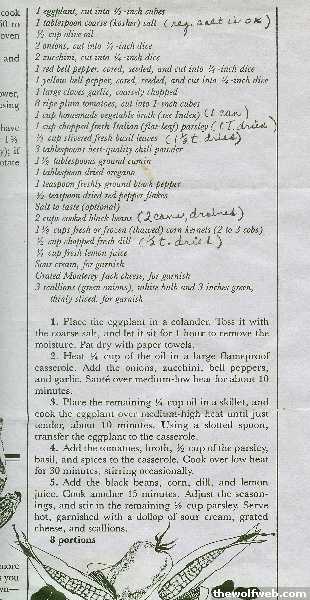 1 eggplant, cut into ½-inch cubes
1 tablespoon coarse (kosher) salt (reg. salt is ok)
½ cup olive oil
2 onions, cut into ¼-inch dice
2 zucchini, cut into ¼-inch dice
1 red bell pepper, cored, seeded, and cut into ¼-inch dice
1 yellow bell pepper, cored, seeded, and cut into ¼-inch dice
4 large cloves garlic, coarsely chopped
8 ripe plum tomatoes, cut into 1-inch cubes
1 cup homemade vegetable broth (see Index) (1 can)
1 cup chopped fresh Italian (flat-leaf) parsley (1T. dried)
½ cup slivered fresh basil leaves (1½ t. dried)
3 tablespoons best-quality chili powder
1½ tablespoons ground cumin
1 tablespoon dried oregano
1 teaspoon freshly ground black pepper
½ teaspoon dried red pepper flakes
Salt to taste (optional)
2 cups cooked black beans (2 cans, drained)
1½ cups fresh or frozen (thawed) corn kernels (2 to 3 cobs)
½ cup chopped fresh dill (½ t. dried)
¼ cup fresh lemon juice
Sour cream, for garnish
Grated Monterey Jack cheese, for garnish
3 scallions (green onions), white bulb and 3 inches green,
thinly sliced, for garnish
1. Place the eggplant in a colander. Toss it with
the coarse salt, and let it sit for 1 hour to remove the
moisture. Pat dry with paper towels.
2. Heat ¼ cup of the oil in a large flameproof
casserole. Add the onions, zucchini, bell peppers,
and garlic. Sauté over medium-low heat for about 10
minutes.
3. Place the remaining ¼ cup oil in a skillet, and
cook the eggplant over medium-high heat until just
tender, about 10 minutes. Using a slotted spoon,
transfer the eggplant to the casserole.
4. Add the tomatoes, broth, ½ cup of the parsley,
basil, and spices to the casserole. Cook over low heat
for 30 minutes, stirring occasionally.
5. Add the black beans, corn, dill, and lemon
juice. Cook another 15 minutes. Adjust the season-
ings, and stir in the remaining ½ cup parsley. Serve
hot, garnished with a dollop of sour cream, grated
cheese, and scallions.
8 portions
thewolfweb.com